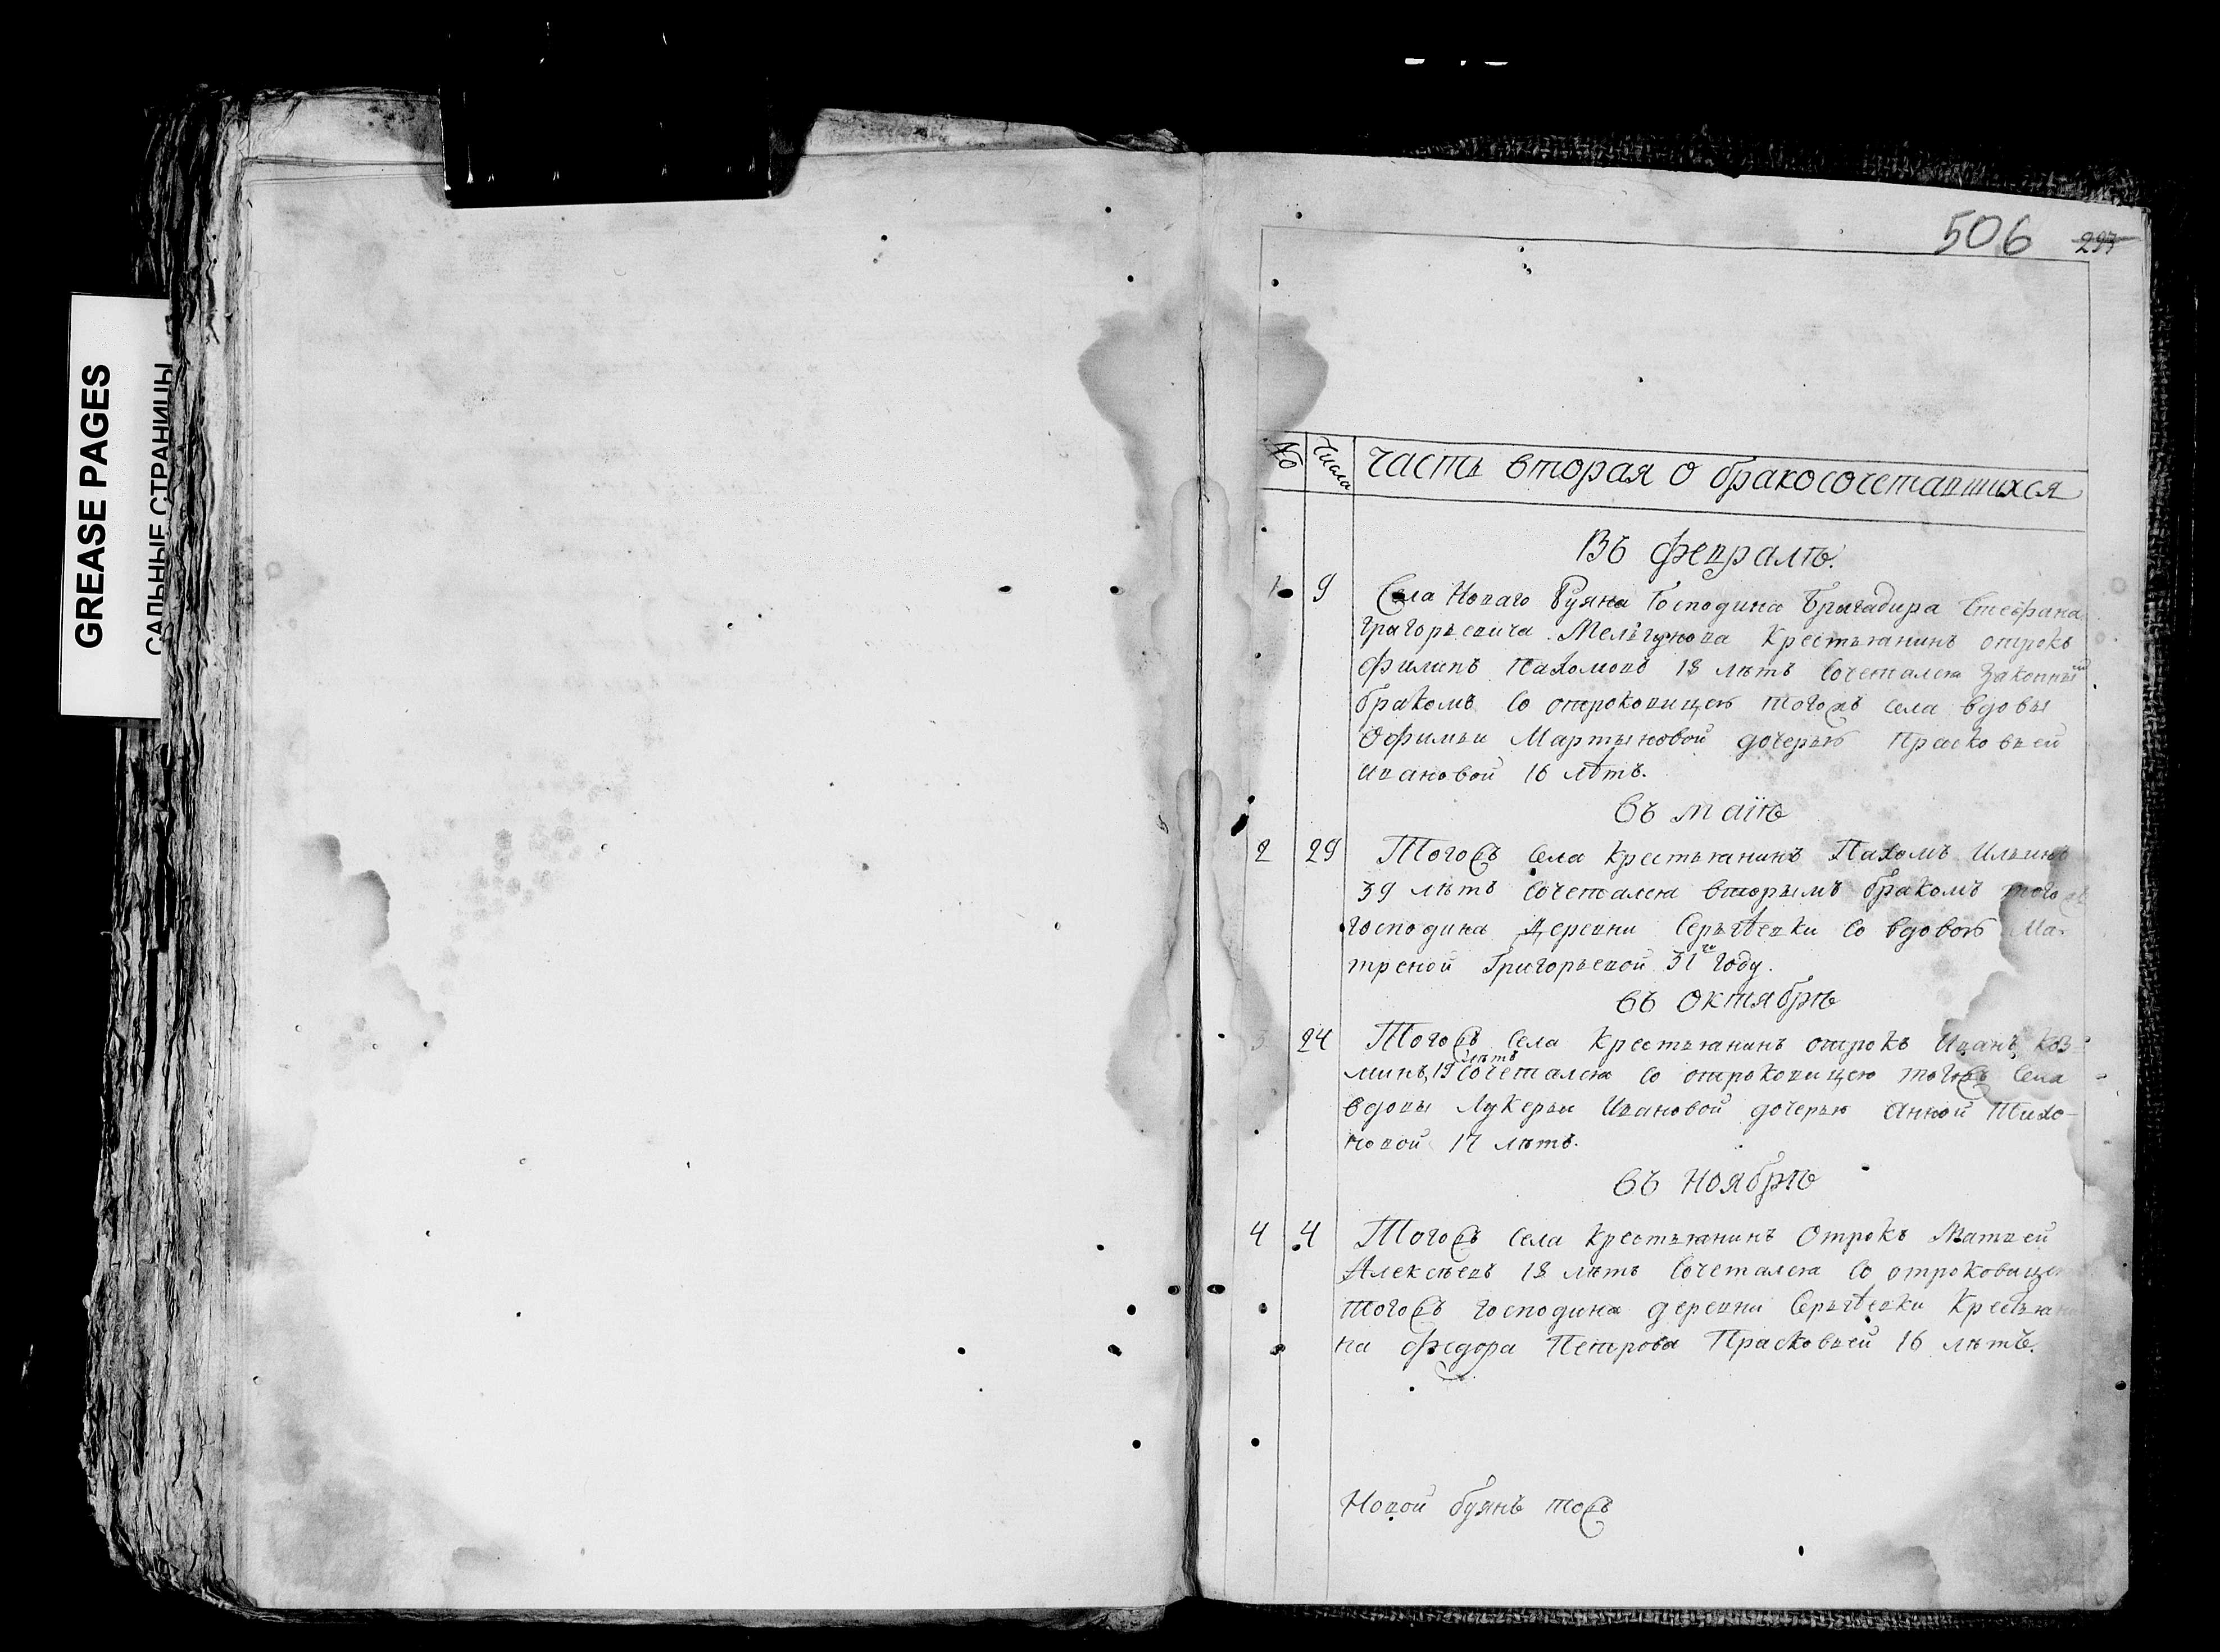 GREASE PAGES
САЛЬНЫЕ СТРАНИЦЫ
506 297
№ Числа Часть вторая о бракосочетавшихся
Въ февралѣ.
1 9 Села Новаго Буяна Господина Бригадира Стефана
григорьевича Мельгунова Крестьянинъ отрокъ
филипъ Пахомовъ 18 лѣтъ Сочетался Законны
бракомъ Со отроковицею тогожъ села вдовы
Офимьи Мартыновой дочерью Прасковьей
ивановой 16 лѣтъ.
въ маiѣ
2 29 Тогожъ Села Крестьянинъ Пахомъ Ильинъ
39 лѣтъ Сочетался вторымъ бракомъ того
господина деревни Сергѣевки Со вдовою Ма-
треной Григорьевой 31го году.
въ Октябрѣ
3 24 Тогожъ Села Крестьянинъ отрокъ Иванъ Коз-
минъ, 19 лѣтъ Сочетался со отроковицею тогожъ Села
вдовы Лукерьи Ивановой дочерью Анной Тихо-
новой 17 лѣтъ.
въ Ноябрѣ
4 4 Тогожъ Села Крестьянинъ Отрокъ Матвей
Алексѣевъ 18 лѣтъ Сочетался Со отроковице
тогожъ господина деревни Сергѣевки Крестьяни
на федора Петрова Прасковьей 16 лѣтъ.
Новой буянъ тожъ